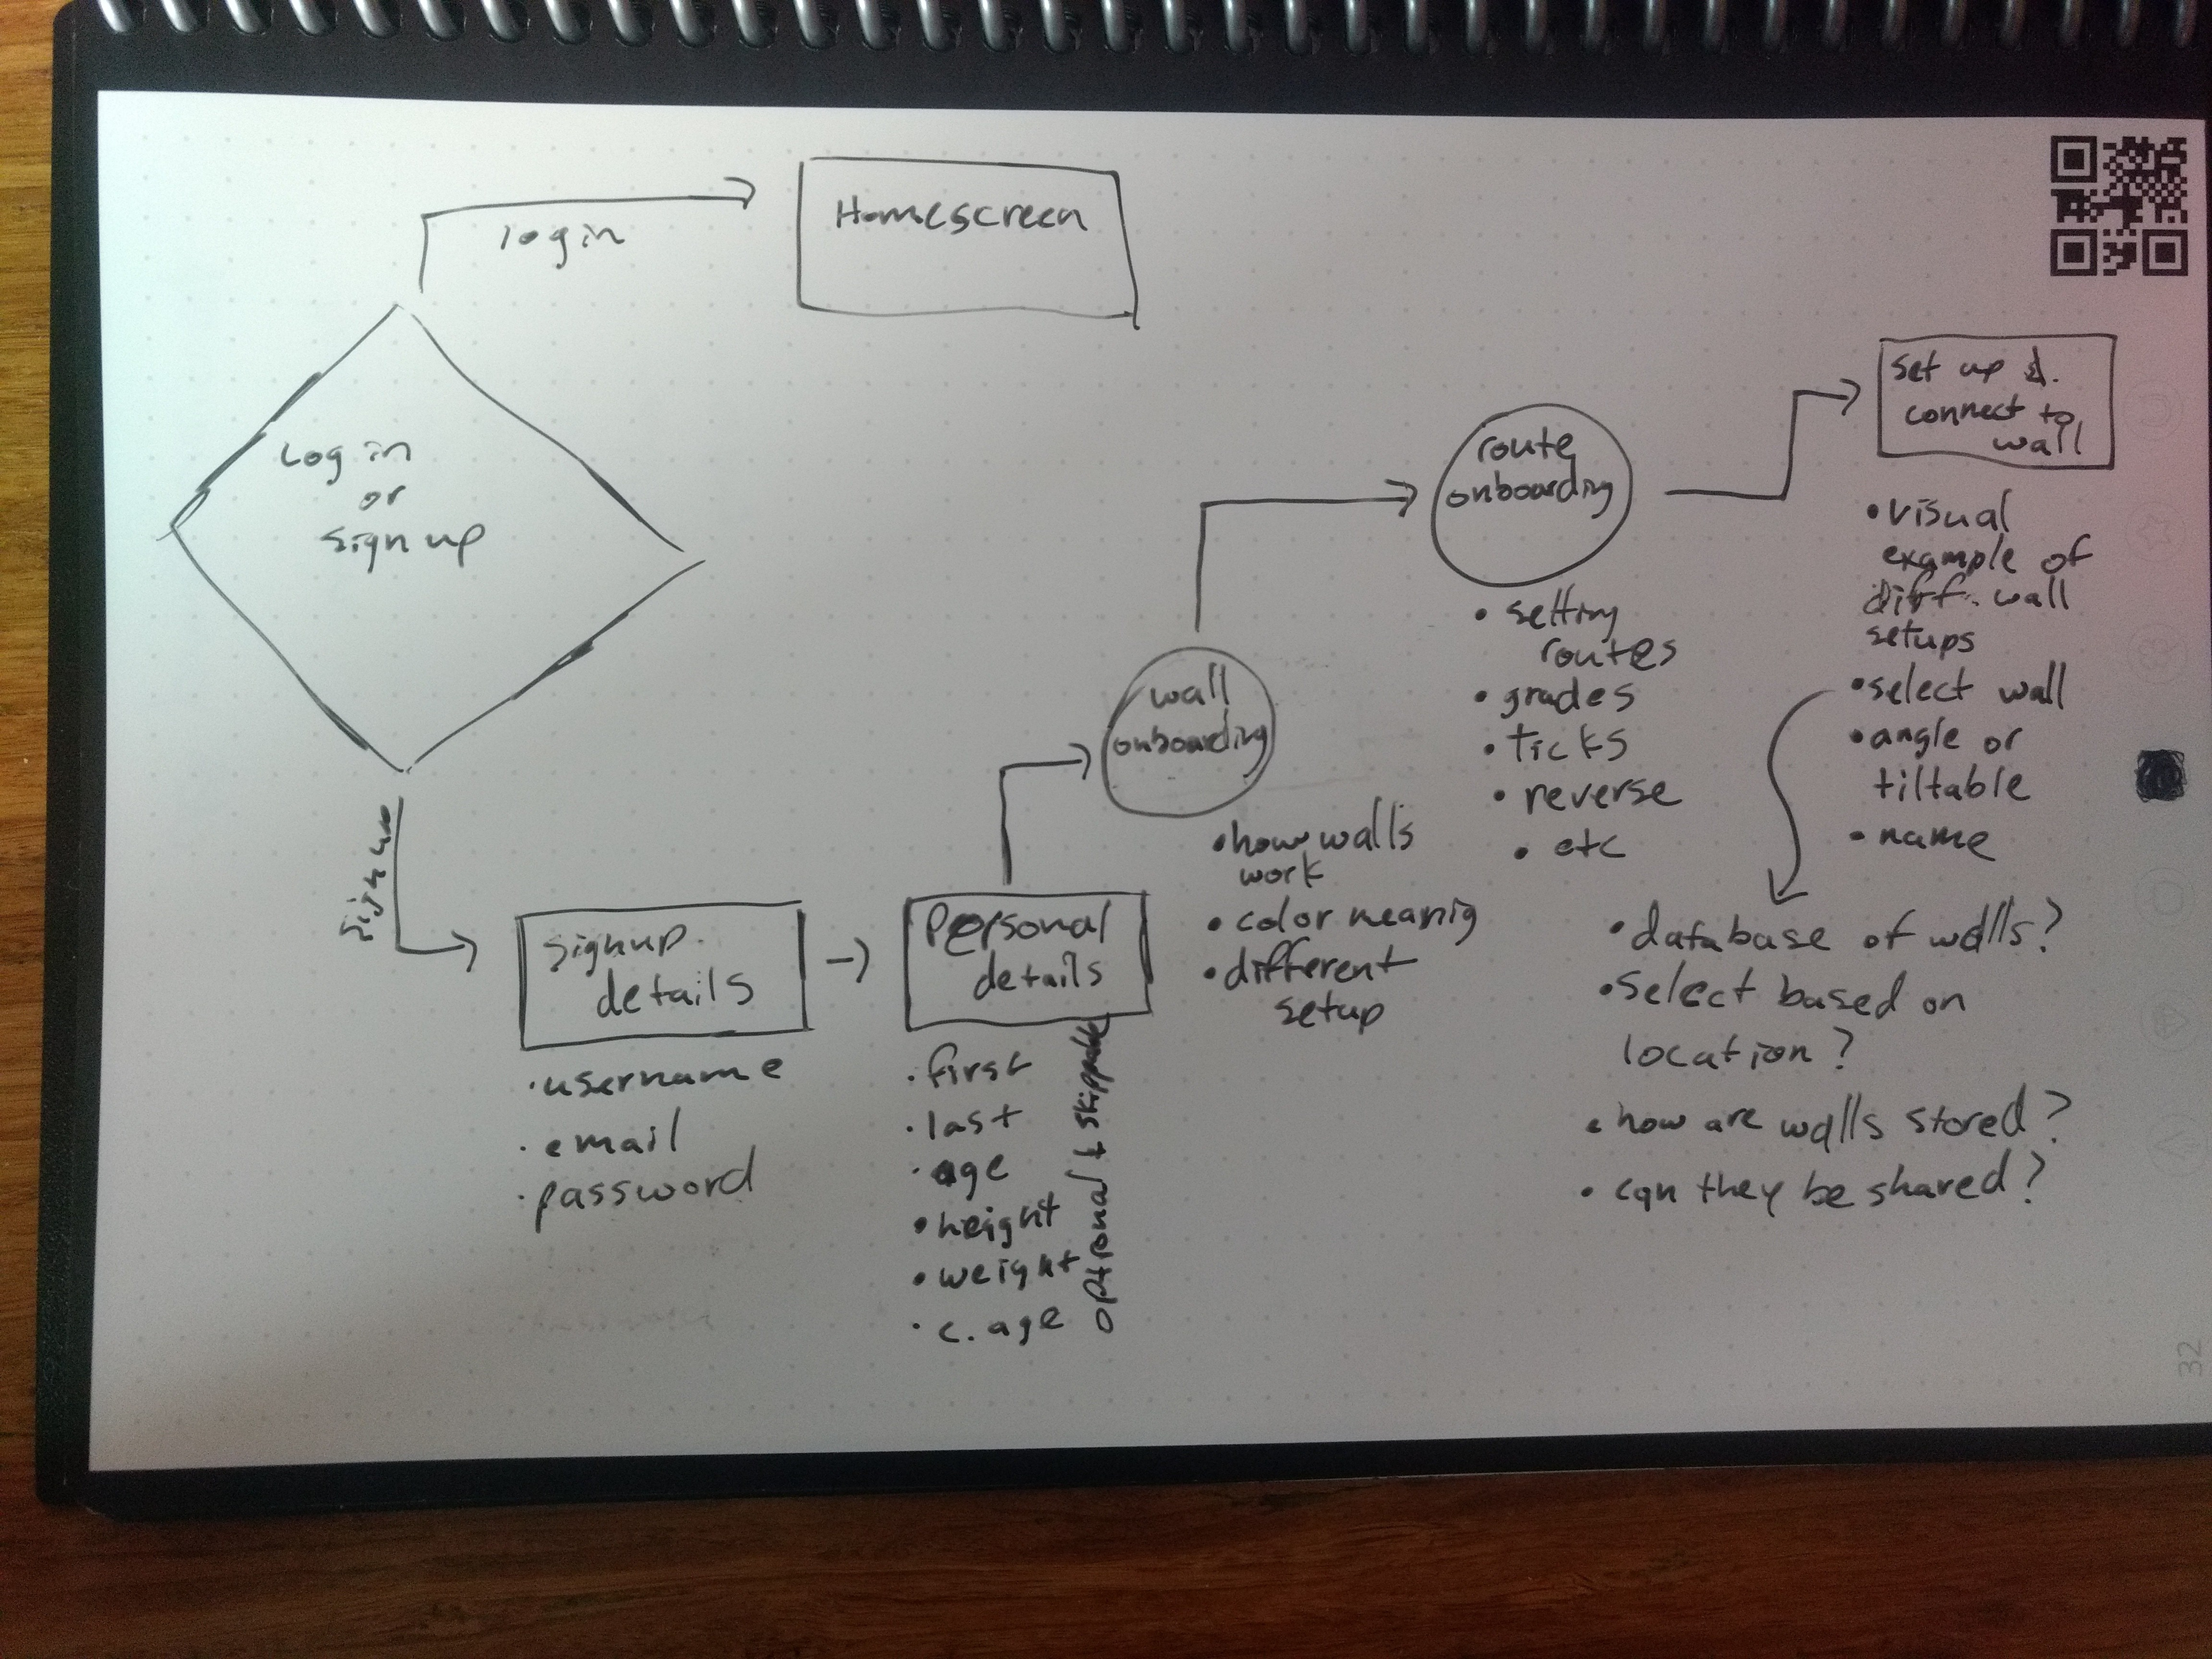 login
Homescreen
Log in
or
sign up
sign up
signup
details
·username
·email
·password
Personal
details
·first
·last
·age
•height
•weight
·c. age
optional + skippable
wall
onboarding
•how walls
work
•color meanig
•different
setup
route
onboarding
• setting
routes
•grades
•ticks
•reverse
• etc
set up &
connect to
wall
•visual
example of
diff. wall
setups
•select wall
•angle or
tiltable
•name
•database of walls?
•Select based on
location?
•how are walls stored?
• can they be shared?
32